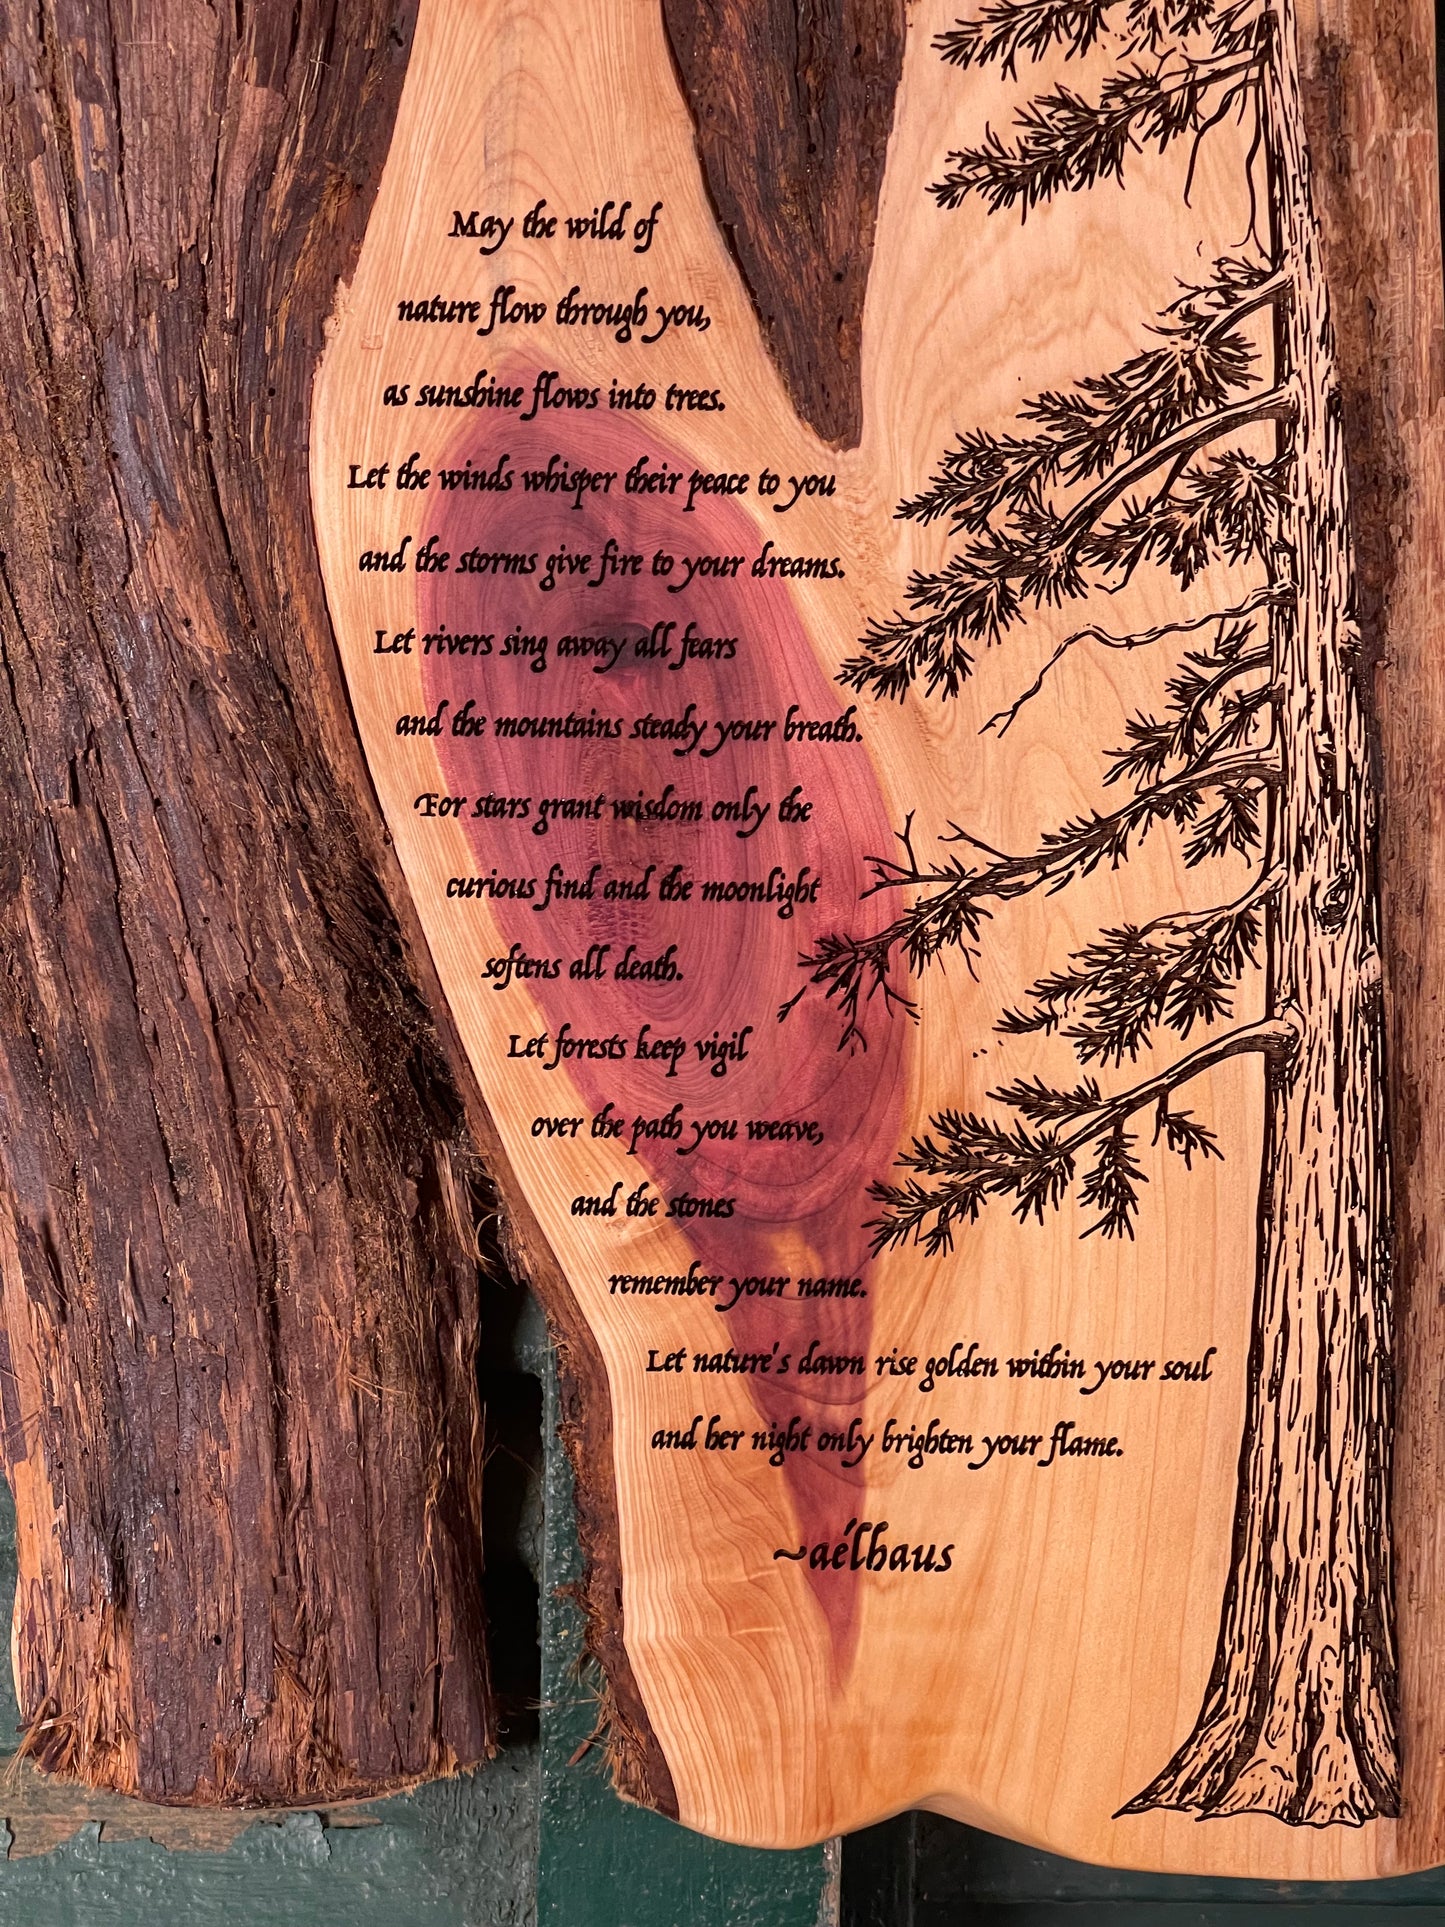 May the wild of
nature flow through you,
as sunshine flows into trees.
Let the winds whisper their peace to you
and the storms give fire to your dreams.
Let rivers sing away all fears
and the mountains steady your breath.
For stars grant wisdom only the
curious find and the moonlight
softens all death.
Let forests keep vigil
over the path you weave,
and the stones
remember your name.
Let nature's dawn rise golden within your soul
and her night only brighten your flame.
~aélhaus